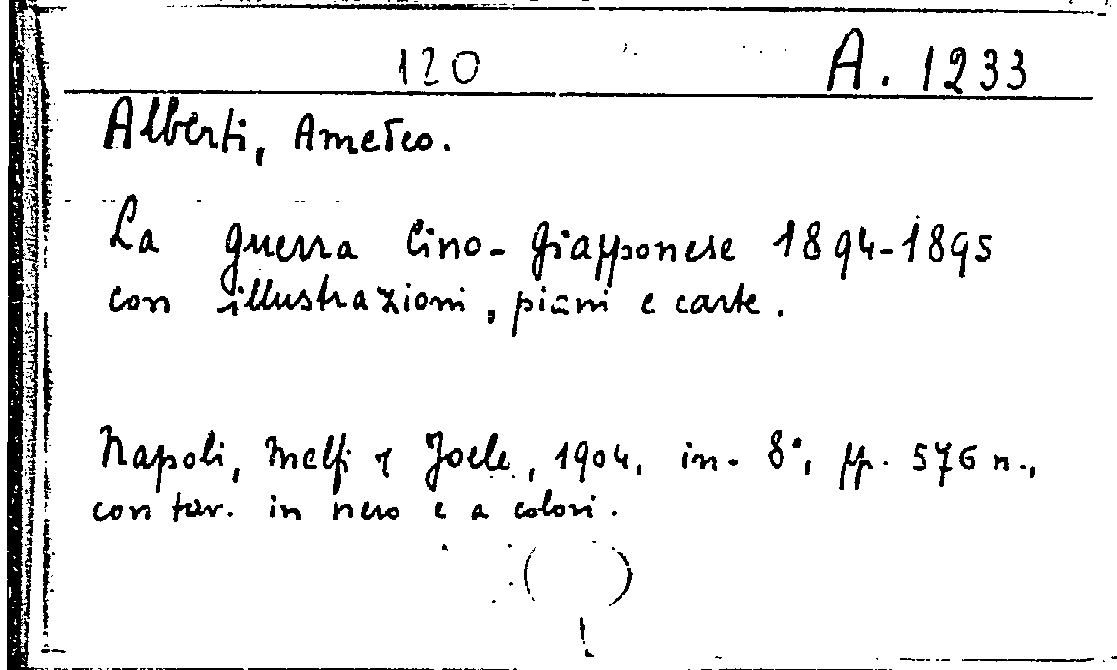 120 A. 1233
Alberti, Ameteo.
La guerra Cino-Giapponese 1894-1895
con illustrazioni, piani e carte.
Napoli, Melfi & Joele, 1904, in-8°, pp. 576 n.,
con tav. in nero e a colori.